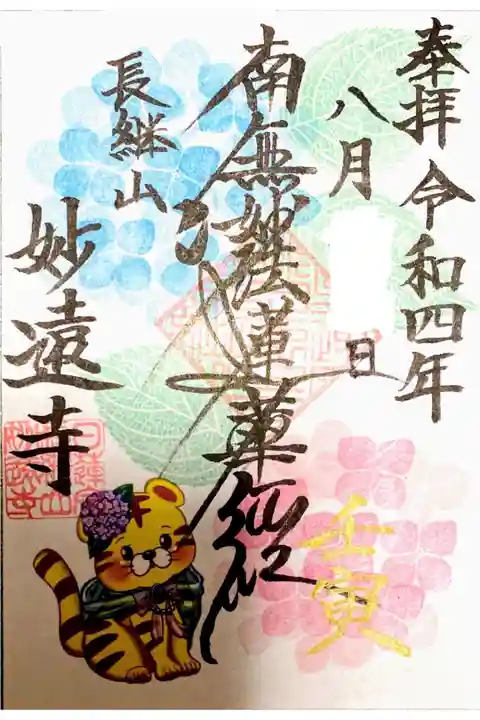 奉拝 令和四年
八月 日
南無妙法蓮華経
長継山
妙遠寺
壬寅